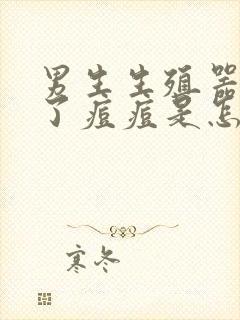 男生生殖器
了痘痘是怎
寒冬